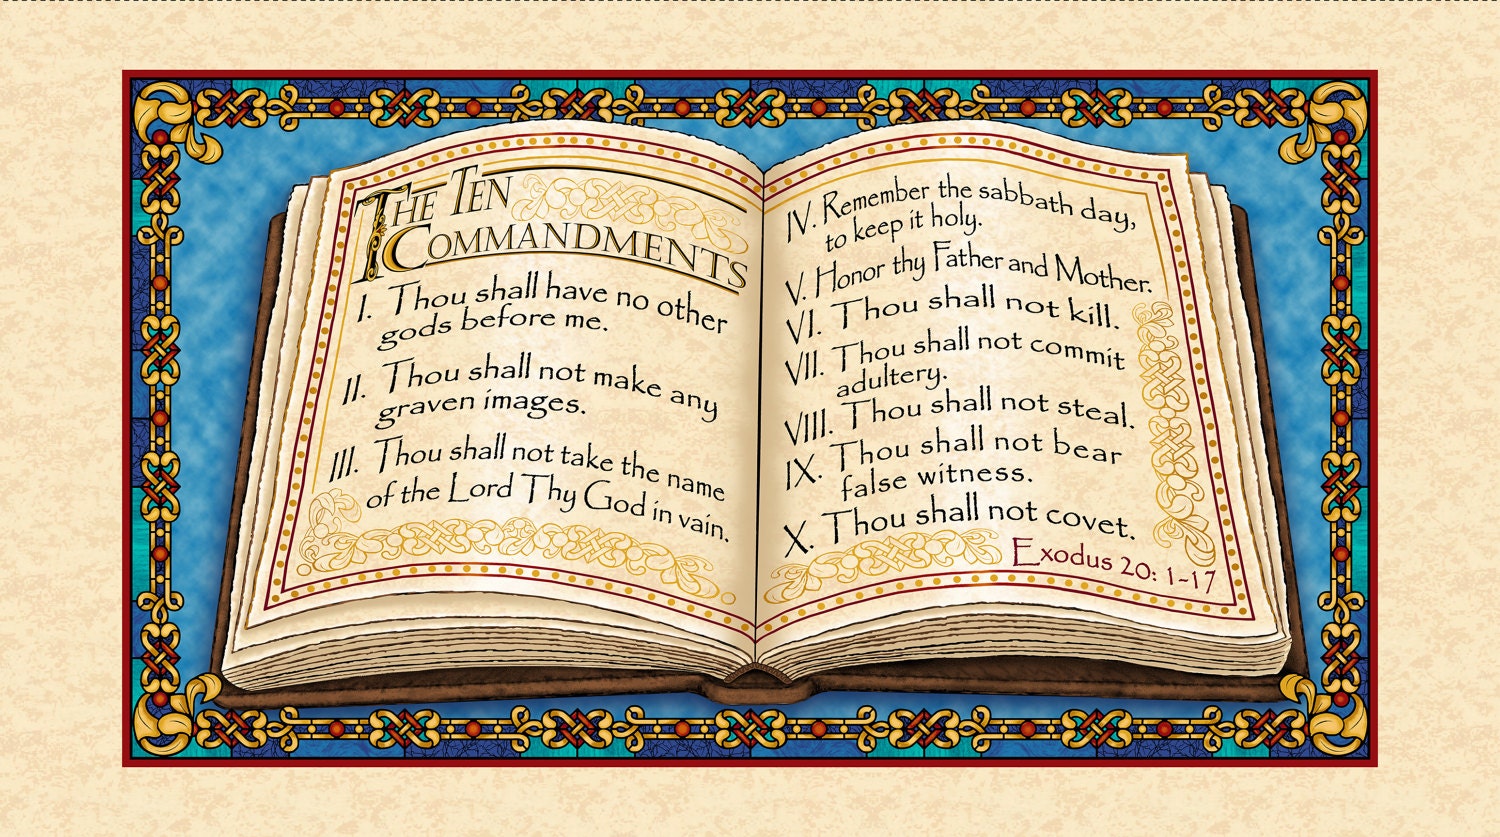 The Ten
Commandments
I. Thou shall have no other
gods before me.
II. Thou shall not make any
graven images.
III. Thou shall not take the name
of the Lord Thy God in vain.
IV. Remember the sabbath day,
to keep it holy.
V. Honor thy Father and Mother.
VI. Thou shall not kill.
VII. Thou shall not commit
adultery.
VIII. Thou shall not steal.
IX. Thou shall not bear
false witness.
X. Thou shall not covet.
Exodus 20: 1-17